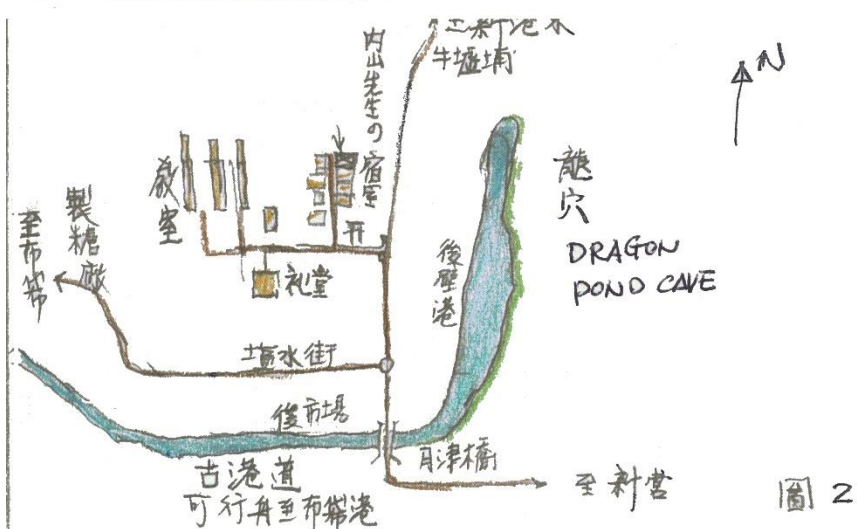 牛墟埔
N
内山先生の宿室
教室
龍穴
DRAGON
POND CAVE
製糖廠
至布袋
礼堂
後壁港
塩水街
後市場
月津橋
古港道
可行舟至布袋港
至新営
圖 2